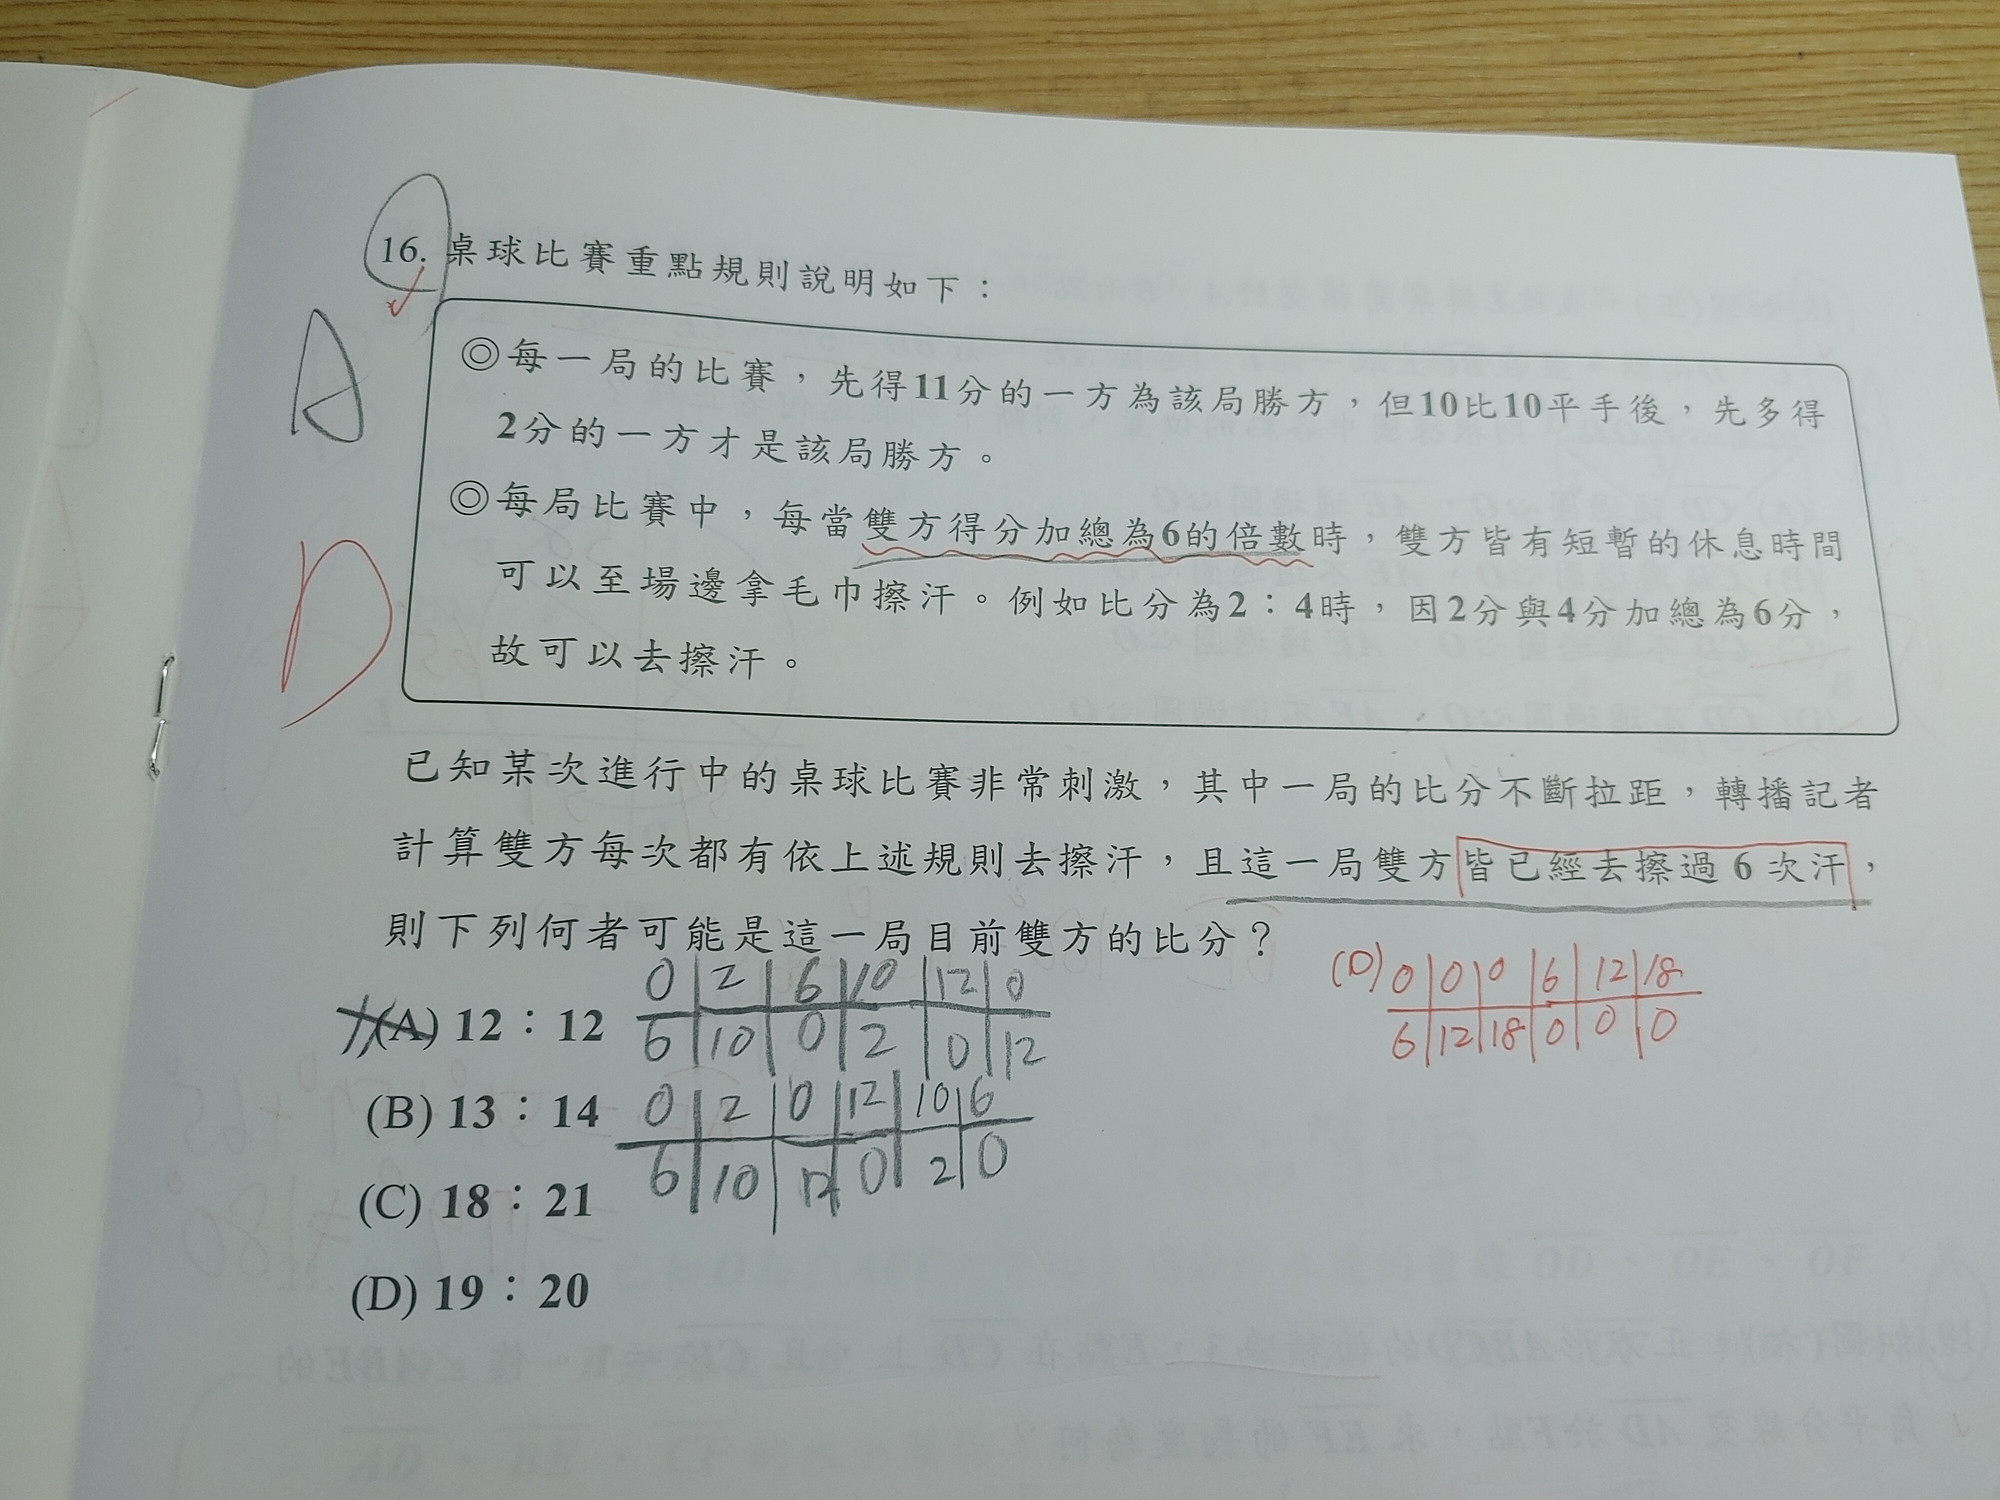 16. 桌球比賽重點規則說明如下：
◎每一局的比賽，先得11分的一方為該局勝方，但10比10平手後，先多得
2分的一方才是該局勝方。
◎每局比賽中，每當雙方得分加總為6的倍數時，雙方皆有短暫的休息時間
可以至場邊拿毛巾擦汗。例如比分為2：4時，因2分與4分加總為6分，
故可以去擦汗。
A
D
已知某次進行中的桌球比賽非常刺激，其中一局的比分不斷拉距，轉播記者
計算雙方每次都有依上述規則去擦汗，且這一局雙方皆已經去擦過 6 次汗，
則下列何者可能是這一局目前雙方的比分？
(A) 12：12
0 2 6 10 12 0
6 10 0 2 0 12
(B) 13：14
0 2 0 12 10 6
6 10 12 0 2 0
(C) 18：21
(D) 19：20
(D) 0 0 0 6 12 18
6 12 18 0 0 0